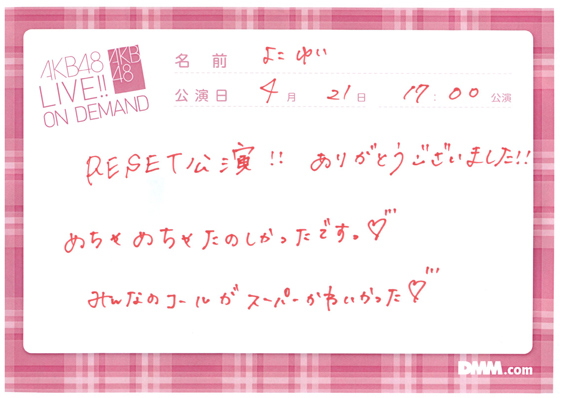 AKB48
LIVE!!
ON DEMAND
AKB
48
名前 よこ ゆい
公演日 4月 21日 17:00 公演
RESET公演!! ありがとうございました!!
めちゃめちゃたのしかったです。♡
みんなのコールがスーパーかわいかった♡
DMM.com